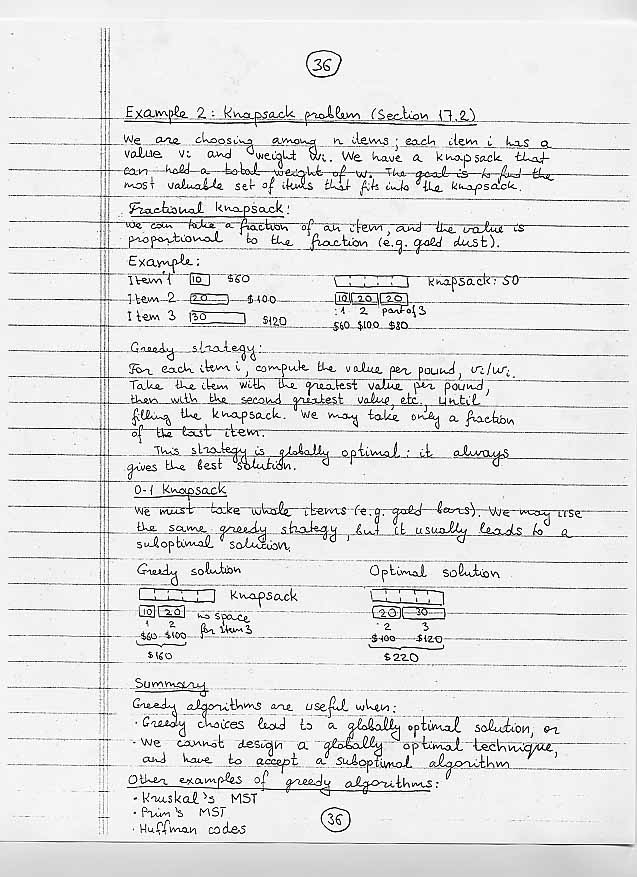 36
Example 2: Knapsack problem (Section 17.2)
We are choosing among n items; each item i has a
value vi and weight wi. We have a knapsack that
can hold a total weight of W. The goal is to find the
most valuable set of items that fits into the knapsack.
Fractional knapsack:
We can take a fraction of an item, and the value is
proportional to the fraction (e.g. gold dust).
Example:
Item 1 10 $60 knapsack: 50
Item 2 20 $100 10 20 20
Item 3 30 $120 1 2 part of 3
$60 $100 $80
Greedy strategy:
For each item i, compute the value per pound, vi/wi.
Take the item with the greatest value per pound,
then with the second greatest value, etc., until
filling the knapsack. We may take only a fraction
of the last item.
This strategy is globally optimal: it always
gives the best solution.
0-1 Knapsack
We must take whole items (e.g. gold bars). We may use
the same greedy strategy, but it usually leads to a
suboptimal solution.
Greedy solution Optimal solution
Knapsack
10 20 no space 20 30
1 2 for item 3 2 3
$60 $100 $100 $120
$160 $220
Summary
Greedy algorithms are useful when:
· Greedy choices lead to a globally optimal solution, or
· We cannot design a globally optimal technique,
and have to accept a suboptimal algorithm
Other examples of greedy algorithms:
· Kruskal's MST
· Prim's MST
· Huffman codes
36